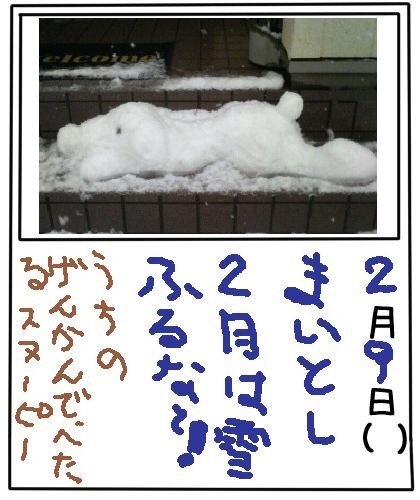 elcome
2月9日( )
まいとし
2月は雪
ふるなぁ!
うちの
げんかんでへた
るスヌーピー